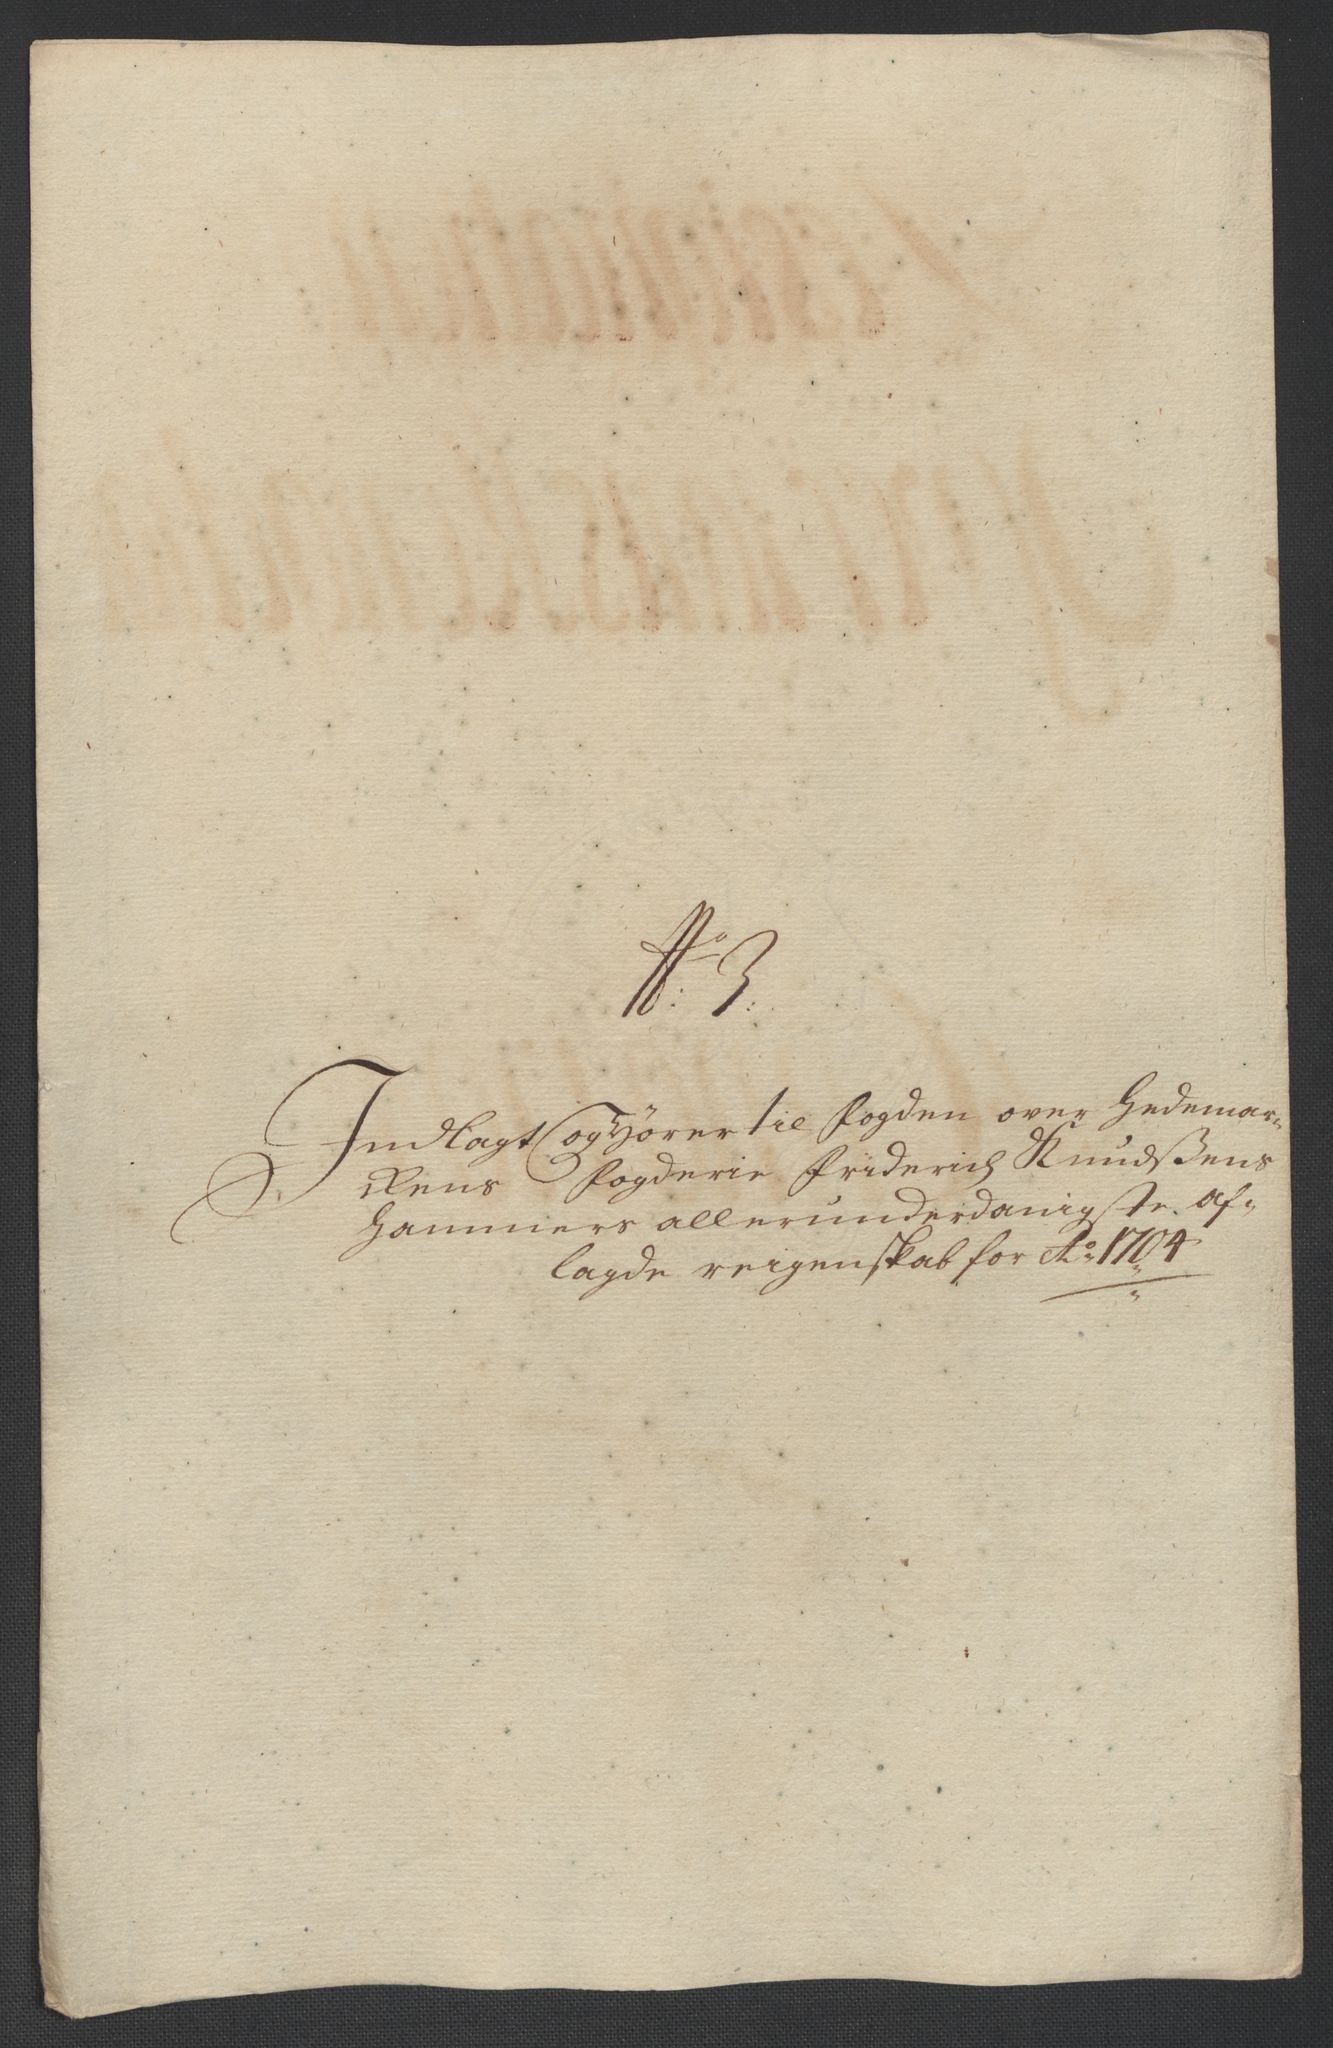 No: 3:
Indlagt og Hører til fogden over Hedemar-
kens fogderie Friderich Knudßens
Hammers allerunderdanigste af-
lagde reigenskab for Ao: 1704